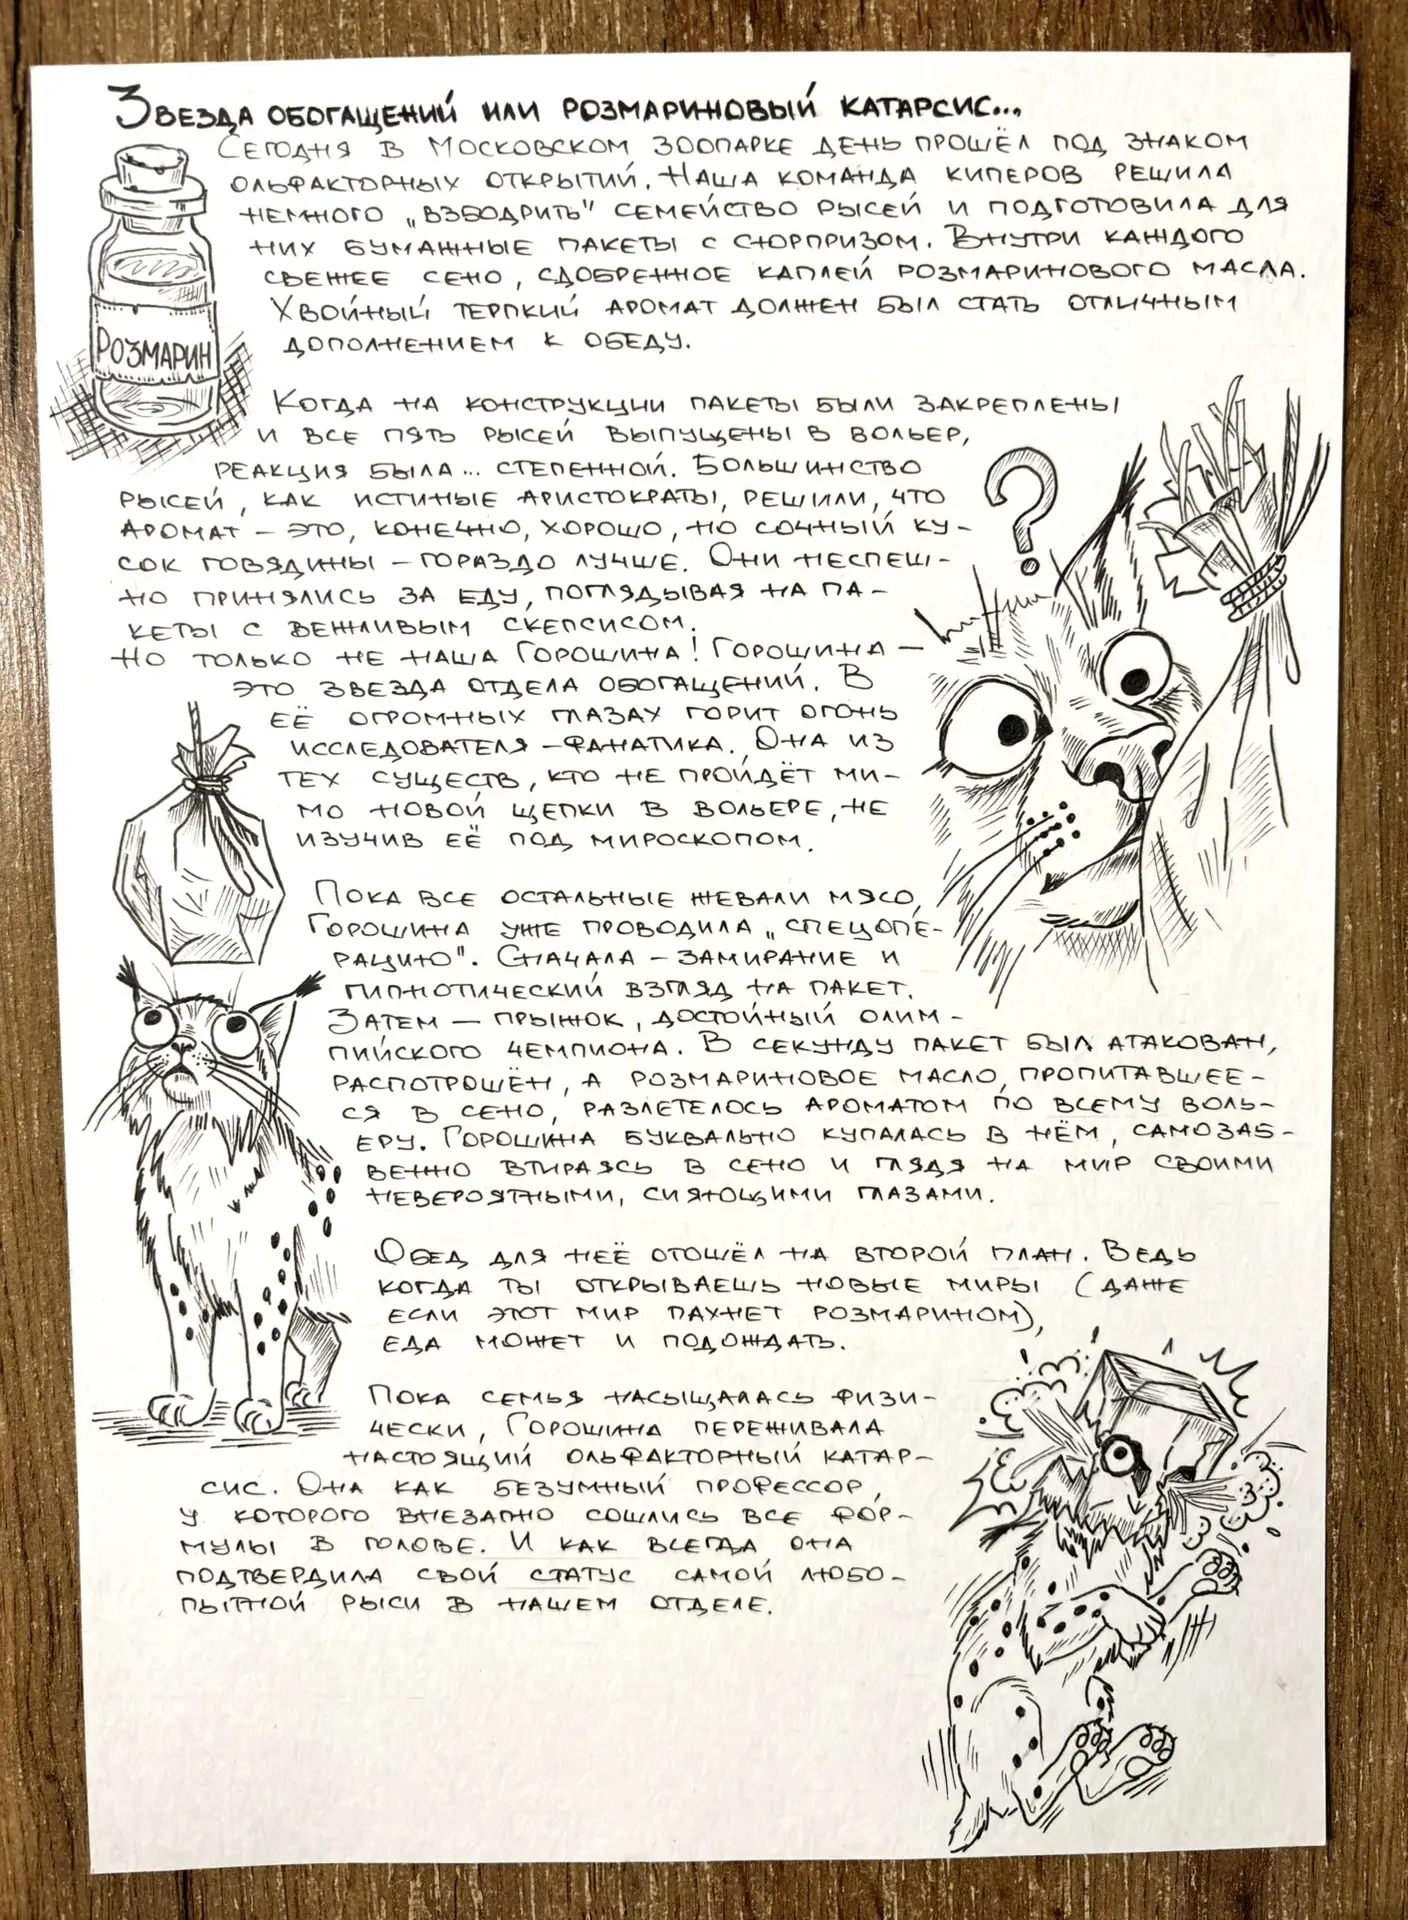 Звезда обогащений или розмариновый катарсис...
Сегодня в Московском зоопарке день прошёл под знаком
ольфакторных открытий. Наша команда киперов решила
немного „взбодрить" семейство рысей и подготовила для
них бумажные пакеты с сюрпризом. Внутри каждого
свежее сено, сдобренное каплей розмаринового масла.
Хвойный терпкий аромат должен был стать отличным
дополнением к обеду.
Розмарин
Когда на конструкции пакеты были закреплены
и все пять рысей выпущены в вольер,
реакция была... степенной. Большинство
рысей, как истиные аристократы, решили, что
аромат – это, конечно, хорошо, но сочный ку-
сок говядины – гораздо лучше. Они неспеш-
но принялись за еду, поглядывая на па-
кеты с вежливым скепсисом.
Но только не наша Горошина! Горошина –
это звезда отдела обогащений. В
её огромных глазах горит огонь
исследователя – фанатика. Она из
тех существ, кто не пройдёт ми-
мо новой щепки в вольере, не
изучив её под мироскопом.
?
Пока все остальные жевали мясо,
Горошина уже проводила „спецопе-
рацию". Сначала – замирание и
гипнотический взгляд на пакет.
Затем – прыжок, достойный олим-
пийского чемпиона. В секунду пакет был атакован,
распотрошён, а розмариновое масло, пропитавшее-
ся в сено, разлетелось ароматом по всему воль-
еру. Горошина буквально купалась в нём, самозаб-
венно втираясь в сено и глядя на мир своими
невероятными, сияющими глазами.
Обед для неё отошёл на второй план. Ведь
когда ты открываешь новые миры (даже
если этот мир пахнет розмарином),
еда может и подождать.
Пока семья насыщалась физи-
чески, Горошина переживала
настоящий ольфакторный катар-
сис. Она как безумный профессор,
у которого внезапно сошлись все фор-
мулы в голове. И как всегда она
подтвердила свой статус самой любо-
пытной рыси в нашем отделе.